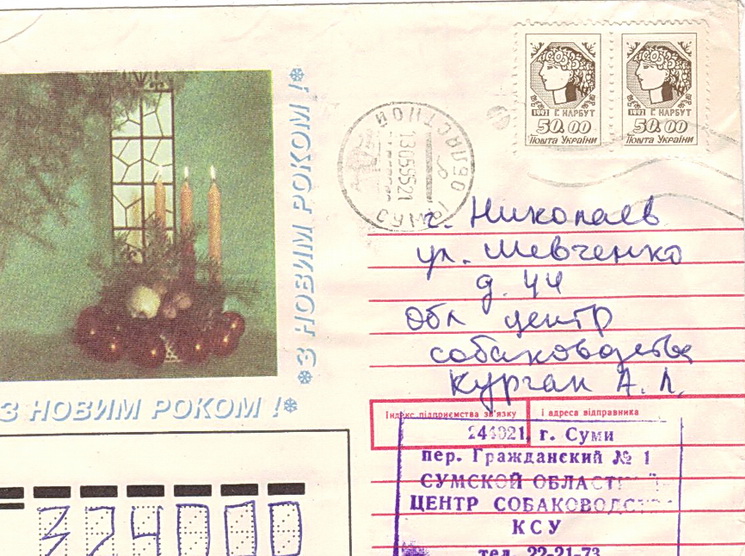 1992 Г. НАРБУТ
50.00
ПОШТА УКРАЇНИ
1992 Г. НАРБУТ
50.00
ПОШТА УКРАЇНИ
З НОВИМ РОКОМ !
З НОВИМ РОКОМ !
СУМИ ОБЛАСТНОЙ
130595 21
г. Николаев
ул. Шевченко
д. 44
Обл центр
собаководства
Курган А. Л.
Індекс підприємства зв'язку і адреса відправника
244021, г. Суми
пер. Гражданский № 1
СУМСКОЙ ОБЛАСТ
ЦЕНТР СОБАКОВОДС
КСУ
тел. 22-21-73
324000